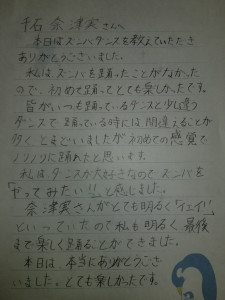 千石奈津実さんへ
本日はズンバダンスを教えていただき
ありがとうございました。
私はズンバを踊ったことがなかった
ので、初めて踊ってとても楽しかったです。
皆がいつも踊っているダンスと少し違う
ダンスで踊っている時には間違えることが
多くとまどいましたが初めての感覚で
ノリノリに踊れたと思います。
私はダンスが大好きなのでズンバを
「やってみたい!!」と感じました。
奈津実さんがとても明るく「イェイ!」
といっていたので私も明るく、最後
まで楽しく踊ることができました。
本日は、本当にありがとうござ
いました。とても楽しかったです。